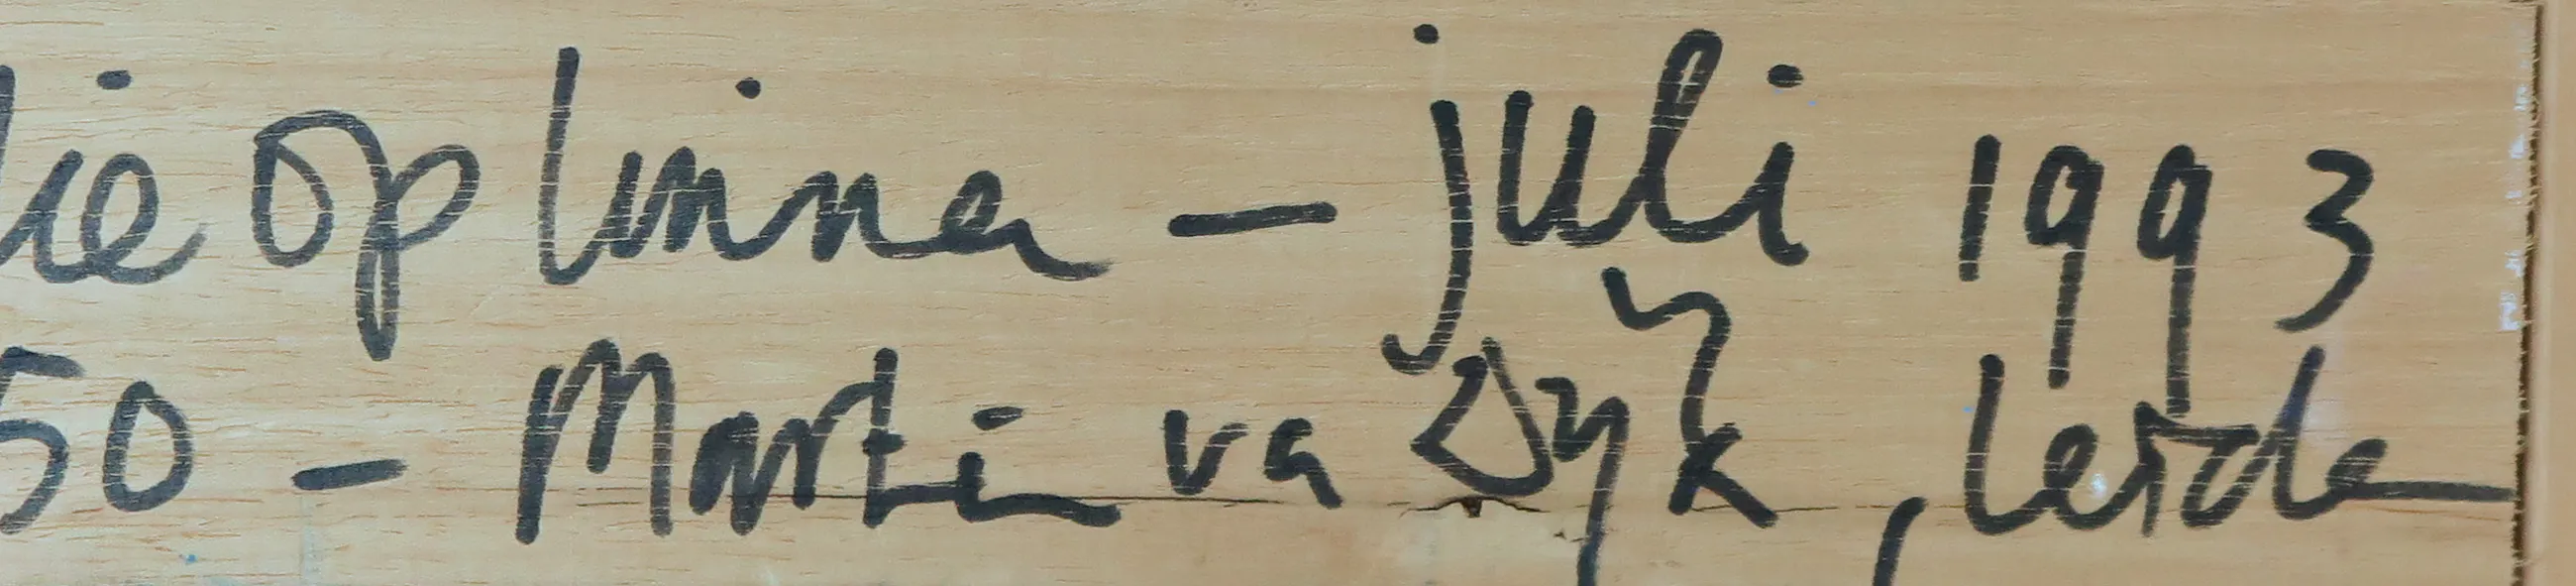 lie op linnen – juli 1993
50 – Martin van Dyk, Leiden